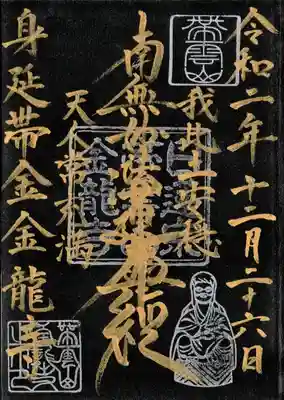 令和二年 十二月二十六日
帯雲山
我此土安穏
南無妙法蓮華経
天人常充満
身延帯金金龍寺
日蓮宗
金龍寺
帯雲山